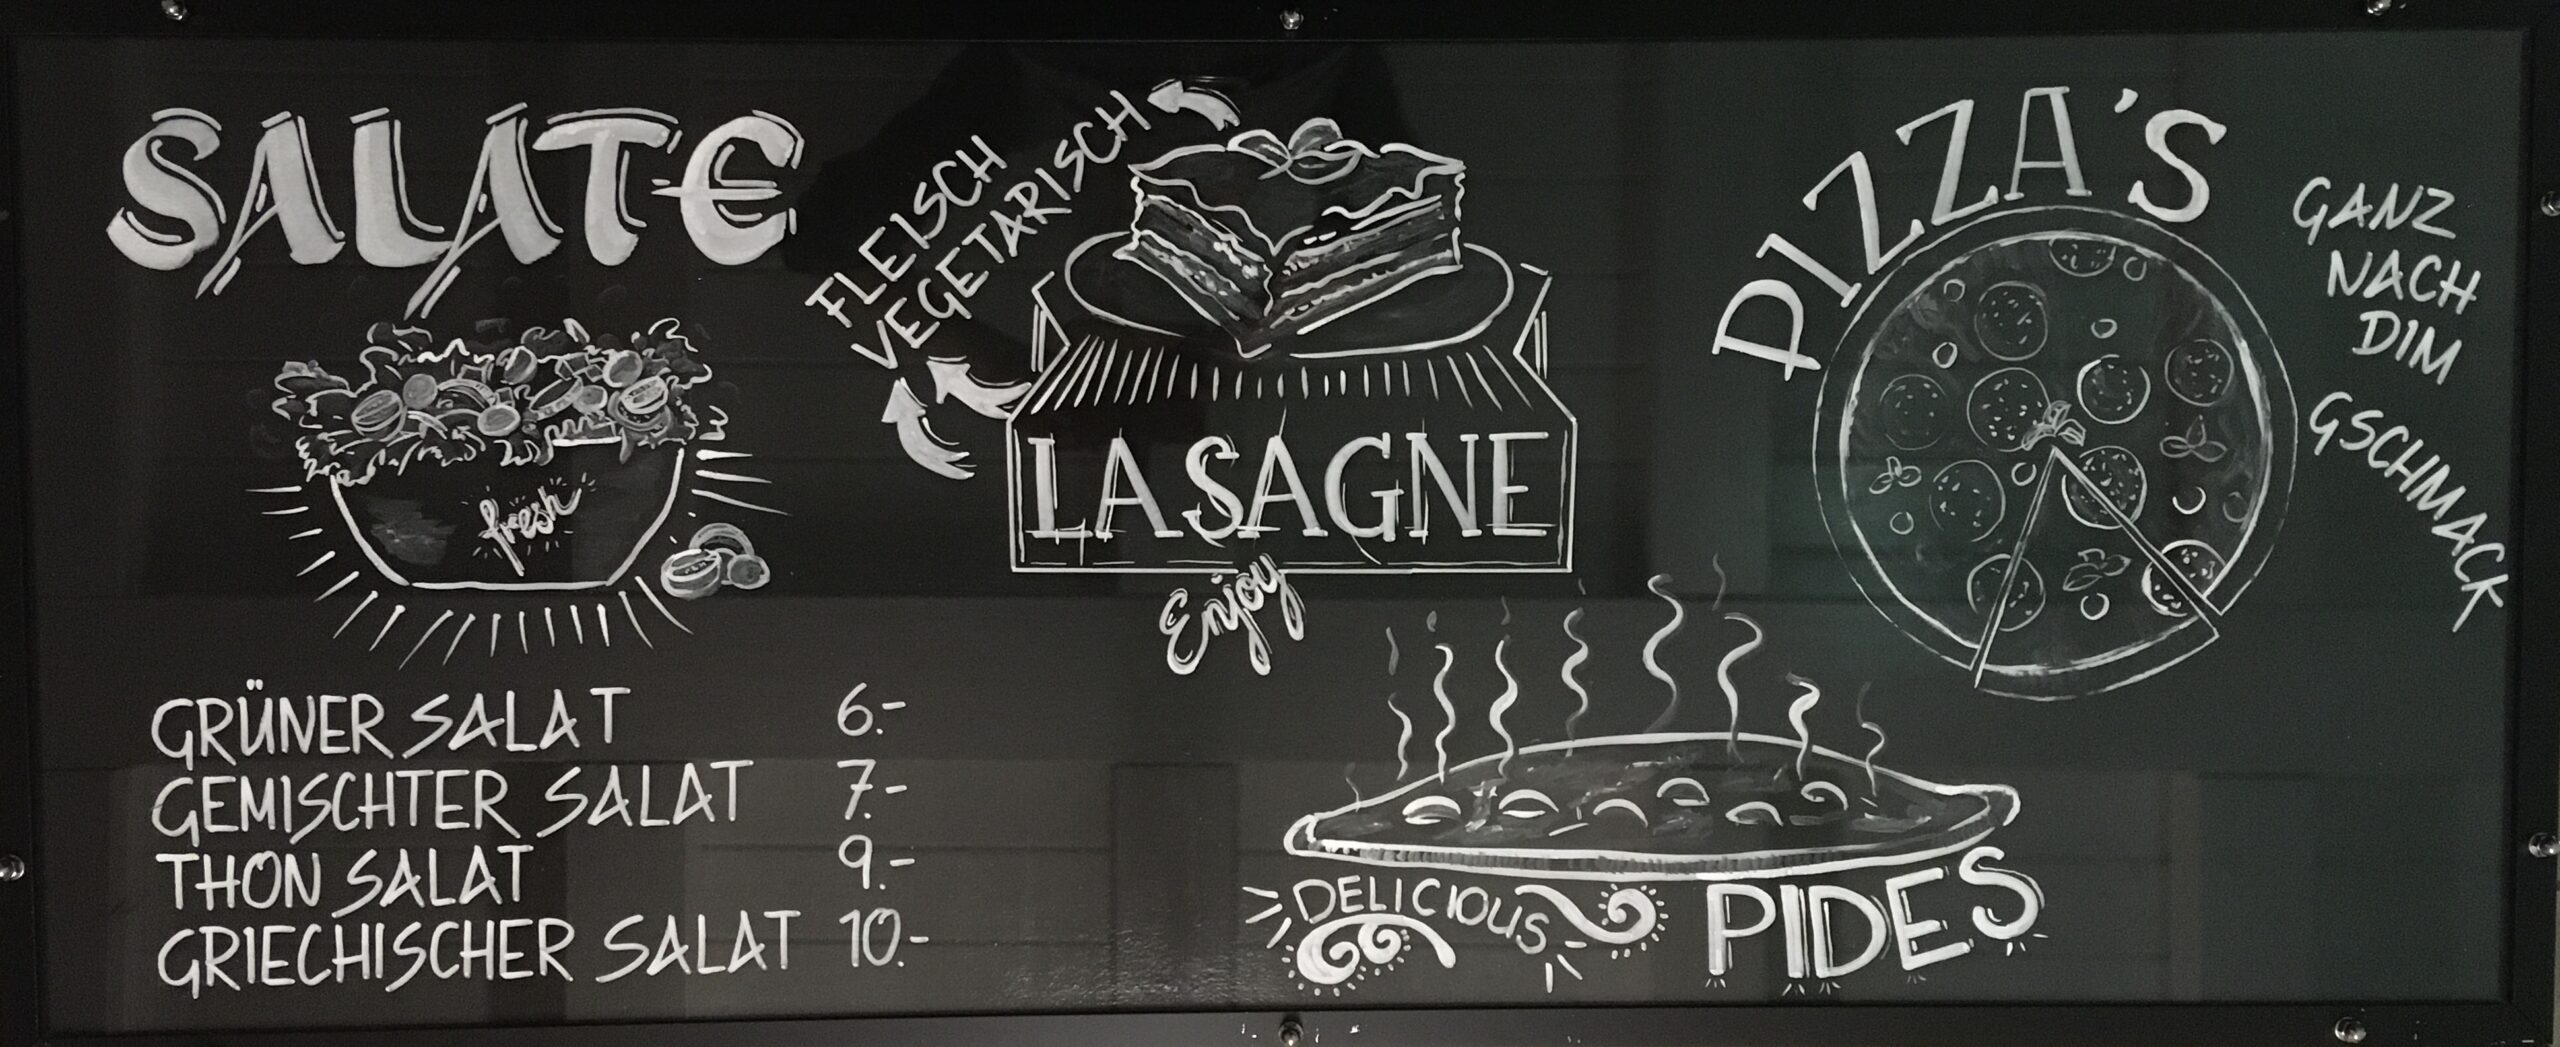 SALATE
fresh
GRÜNER SALAT 6.-
GEMISCHTER SALAT 7.-
THON SALAT 9.-
GRIECHISCHER SALAT 10.-
FLEISCH
VEGETARISCH
LASAGNE
Enjoy
PIZZA'S
GANZ
NACH
DIM
GSCHMACK
DELICIOUS
PIDES